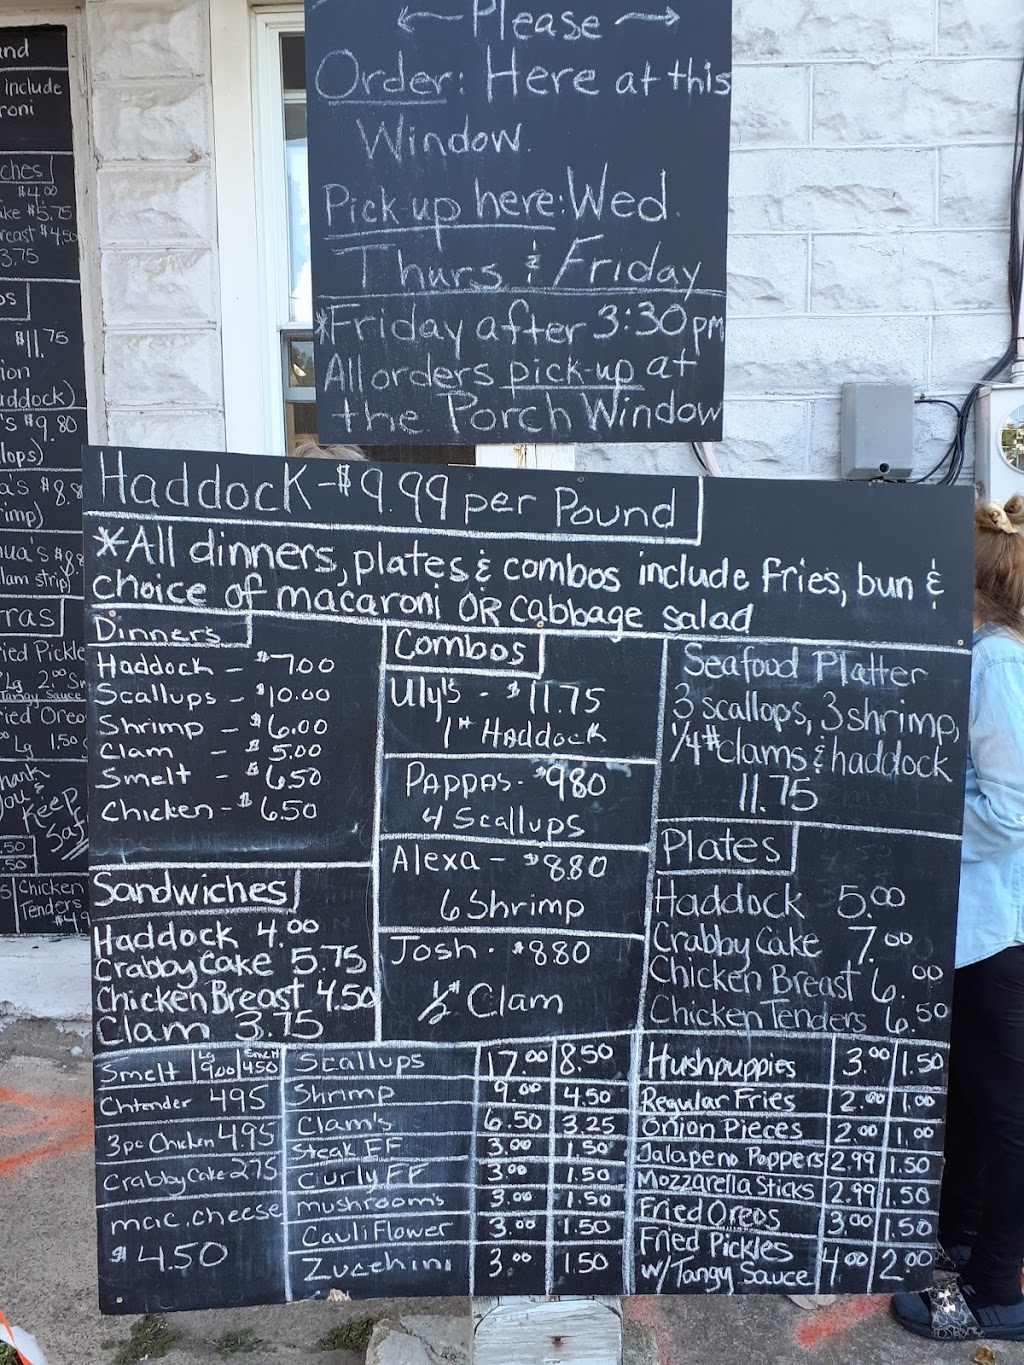 ← Please →
Order: Here at this
Window.
Pick-up here: Wed.
Thurs & Friday
*Friday after 3:30pm
All orders pick-up at
the Porch Window
include
$4.00
$5.75
$4.50
3.75
$11.75
$9.80
Keep
Safe
Chicken
Tenders
Haddock - $9.99 per Pound
*All dinners, plates & combos include fries, bun &
choice of macaroni OR cabbage salad
Dinners
Haddock - $7.00
Scallups - $10.00
Shrimp - $6.00
Clam - $5.00
Smelt - $6.50
Chicken - $6.50
Sandwiches
Haddock 4.00
Crabby Cake 5.75
Chicken Breast 4.50
Clam 3.75
Combos
Uly's - $11.75
1# Haddock
Pappas - $9.80
4 Scallups
Alexa - $8.80
6 Shrimp
Josh - $8.80
1/2# Clam
Seafood Platter
3 scallops, 3 shrimp,
1/4# clams & haddock
11.75
Plates
Haddock 5.00
Crabby Cake 7.00
Chicken Breast 6.00
Chicken Tenders 6.50
Smelt Lg 9.00 Small 4.50
Chtender 4.95
3pc Chicken 4.95
Crabby Cake 2.75
mac.cheese
$4.50
Scallups 17.00 8.50
Shrimp 9.00 4.50
Clam's 6.50 3.25
Steak FF 3.00 1.50
Curly FF 3.00 1.50
mushrooms 3.00 1.50
Cauliflower 3.00 1.50
Zucchini 3.00 1.50
Hushpuppies 3.00 1.50
Regular Fries 2.00 1.00
Onion Pieces 2.00 1.00
Jalapeno Poppers 2.99 1.50
Mozzarella Sticks 2.99 1.50
Fried Oreos 3.00 1.50
Fried Pickles
w/Tangy Sauce 4.00 2.00